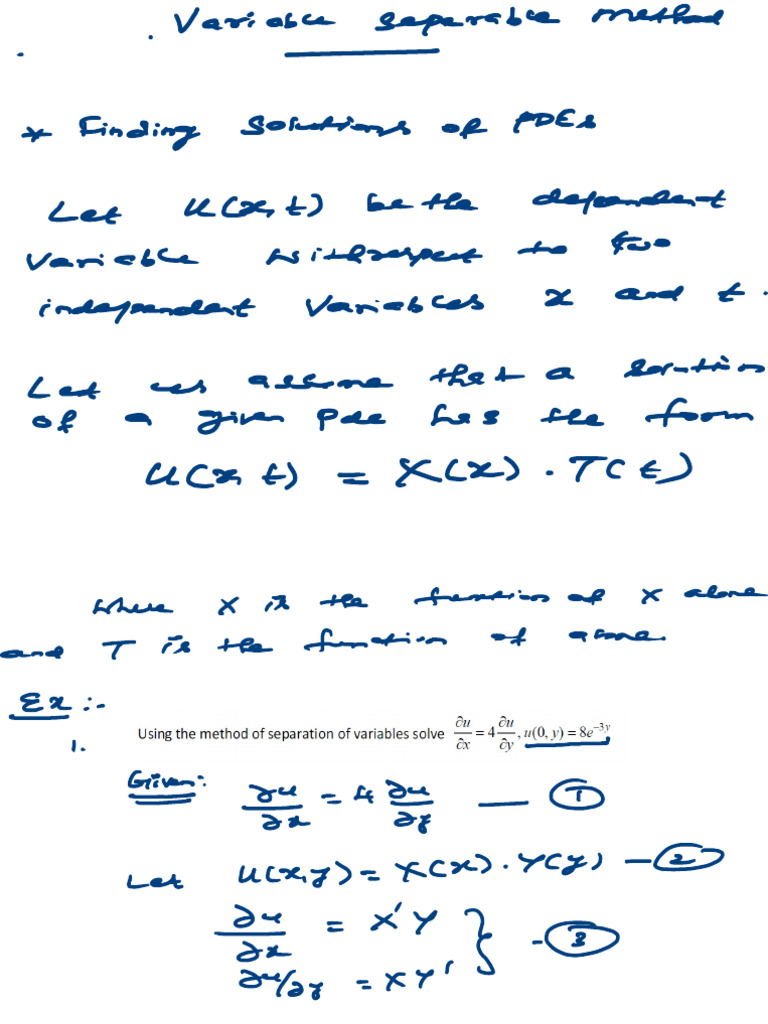 Variable separable method
* Finding solutions of PDEs
Let u(x,t) be the dependent
variable withrespect to two
independent variables x and t.
Let us assume that a solution
of a given pde has the form
u(x,t) = X(x) · T(t)
where X is the function of x alone
and T is the function of alone.
Ex :-
1. Using the method of separation of variables solve ∂u/∂x = 4 ∂u/∂y, u(0, y) = 8e^{-3y}
Given: ∂u/∂x = 4 ∂u/∂y — ①
Let u(x,y) = X(x) · Y(y) — ②
∂u/∂x = X'Y
∂u/∂y = XY' } - ③